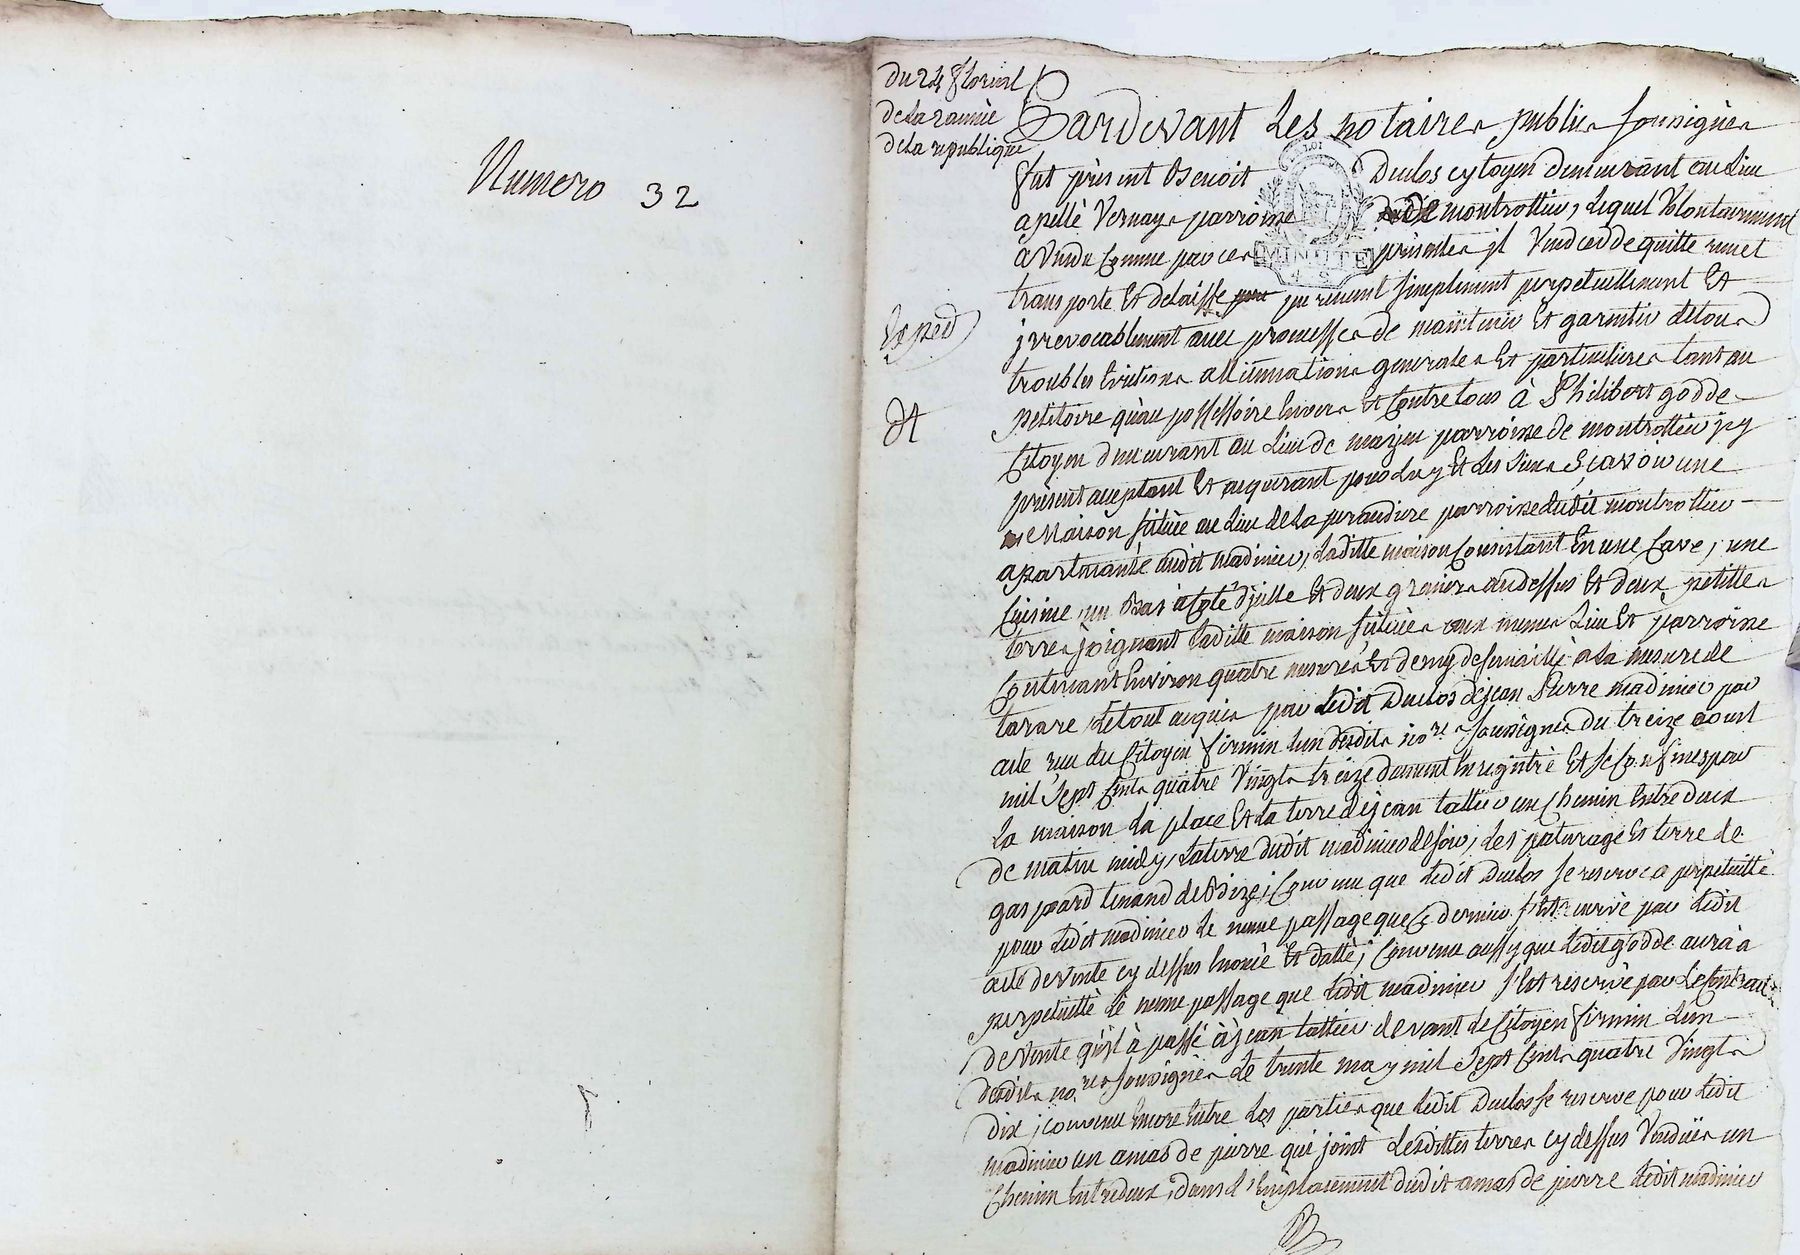 Numero 32
du 24 floreal
de la 2 année
de la republique
Pardevant Les notaires publics soussignés
fut présent Benoit Duclos cytoyen demeurant au lieu
apellé Vernay parroisse de montrottier, lequel Volontairement
a Vendu comme par ces présentes il Vend cedde quitte remet
transporte Et delaisse purement simplement perpetuellement Et
jrrevocablement avec promesses de maintenir Et garentir de tous
troubles Evictions generales Et particulieres tant au
petitoire qu'au possessoire Envers Et Contre tous à Philibert godde
Citoyen demeurant au Lieu de parroisse de montrottier jcy
présent acceptant Et acquerant pour Luy Et Les siens sçavoir une
Maison située au Lieu de La parroisse dudit montrottier
apartenante audit madinier, Laditte maison Consistant En une Cave, une
Cuisine, un Bas à Coté d'jcelle Et deux greniers au dessus Et deux petittes
terres joignant Laditte maison situées aux memes Lieu Et parroisse
Contenant Environ quatre mesures Et demy de semaille à La mesure de
tarare, Le tout acquis par Ledit Duclos de jean Pierre madinier par
acte reçu du Citoyen firmin L'un desdits no.res soussignés du treize aoust
mil sept Cents quatre Vingts treize duement Enregistré Et se Confines par
La maison La place Et La terre de jean tattier un Chemin Entre deux
de matin midy, La terre dudit madinier de soir, Les paturage Et terre de
gaspard tenand de Bize; Convenu que Ledit Duclos se reserve a perpetuitté
pour Ledit madinier Le meme passage que Ce dernier s'est reservé par Ledit
acte de Vente cy dessus Enoncé Et datté; Convenu aussy que Ledit godde aura à
perpetuitté Le meme passage que Ledit madinier s'est reservé par Le Contract
de Vente qu'jl à passé à jean tattier devant Le Citoyen firmin L'un
desdits no.res soussignés Le trente may mil sept Cents quatre Vingts
dix; convenu Encore Entre Les parties que Ledit Duclos se reserve pour Ledit
madinier un amas de pierre qui joint Lesdittes terres cy dessus Venduës un
Chemin Entre deux, dans L'Emplacement dudit amas de pierre Ledit madinier
Exped
LA LOI
MINUTE